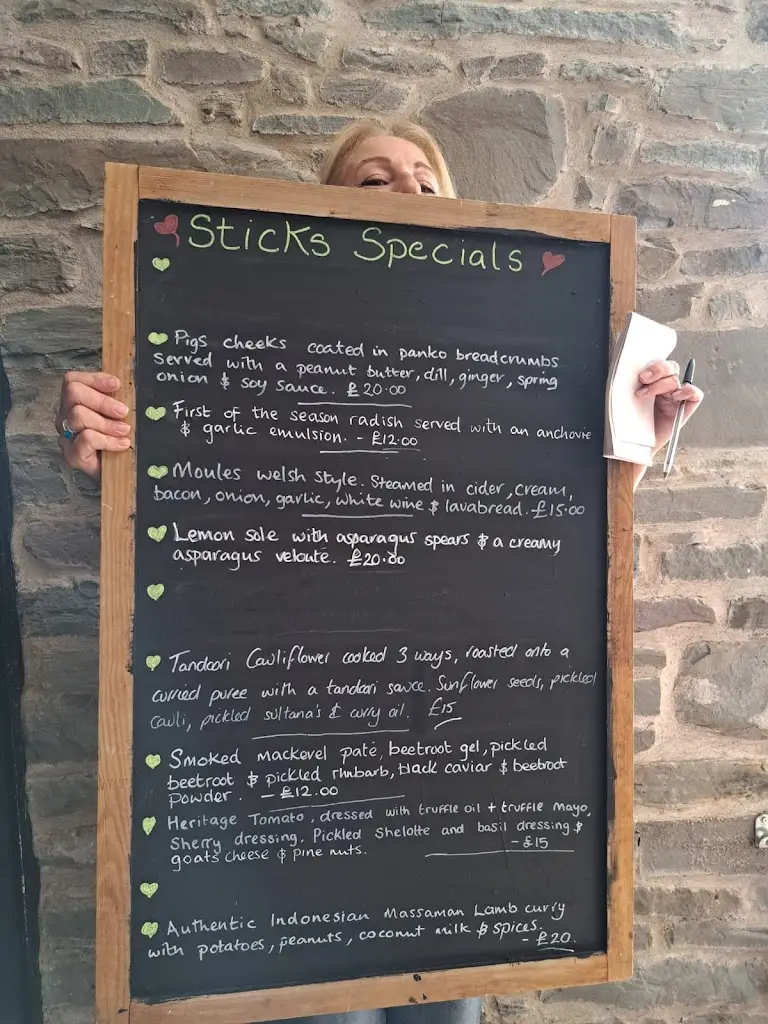 Sticks Specials
Pigs cheeks coated in panko breadcrumbs
served with a peanut butter, dill, ginger, spring
onion & soy sauce. £20.00
First of the season radish served with an anchovie
& garlic emulsion. - £12.00
Moules welsh style. Steamed in cider, cream,
bacon, onion, garlic, white wine & lavabread. £15.00
Lemon sole with asparagus spears & a creamy
asparagus veloute. £20.00
Tandoori Cauliflower cooked 3 ways, roasted onto a
curried puree with a tandoori sauce. Sunflower seeds, pickled
cauli, pickled sultana's & curry oil. £15
Smoked mackerel paté, beetroot gel, pickled
beetroot & pickled rhubarb, black caviar & beetroot
powder. - £12.00
Heritage Tomato, dressed with truffle oil + truffle mayo,
Sherry dressing. Pickled Shelotte and basil dressing &
goats cheese & pine nuts. - £15
Authentic Indonesian Massaman Lamb curry
with potatoes, peanuts, coconut milk & spices.
- £20.